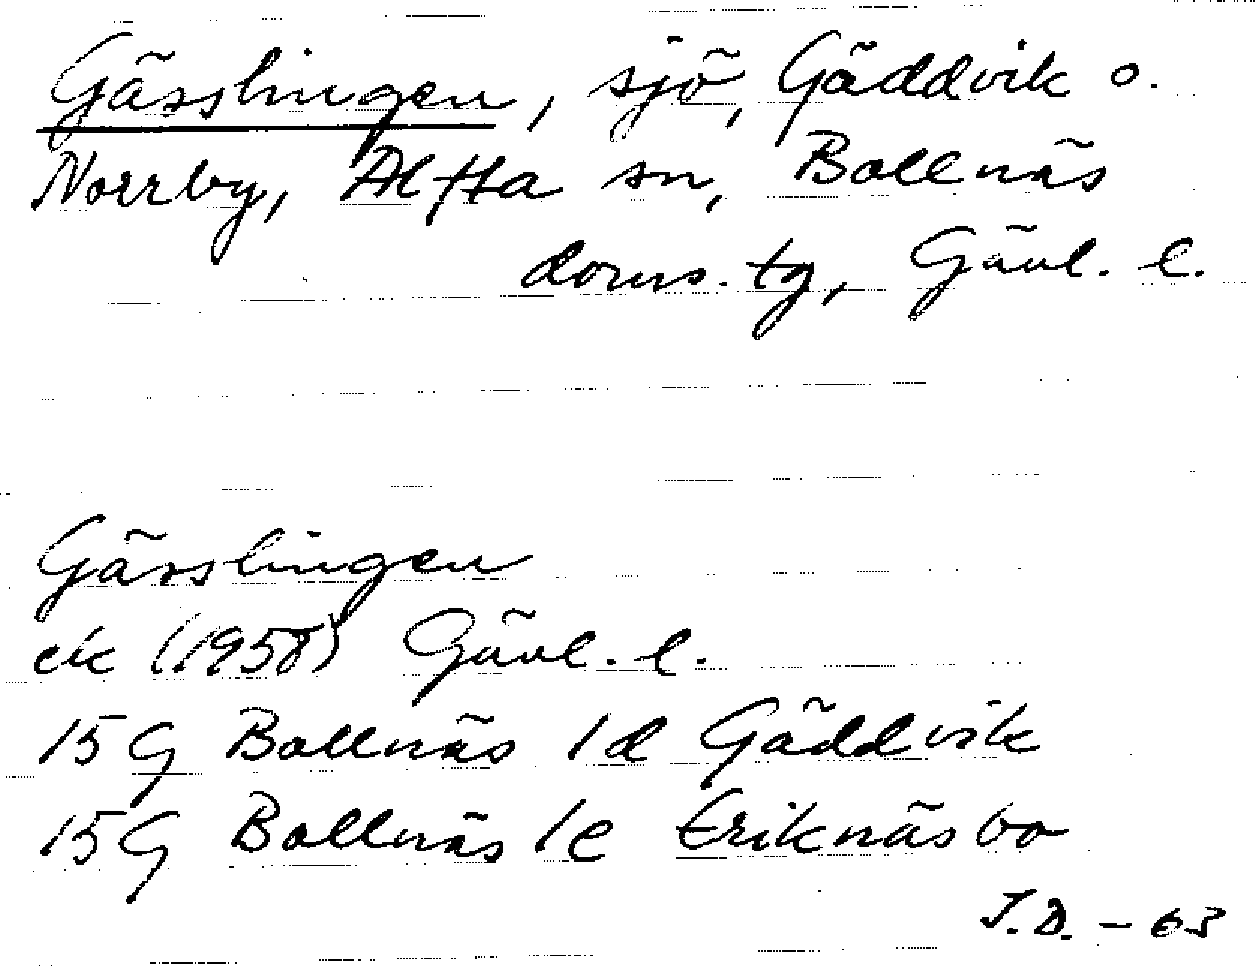 Gässlingen, sjö, Gäddvik o.
Norrby, Alfta sn, Bollnäs
doms. tg, Gävl. l.
Gässlingen
ek (1958) Gävl. l.
15 G Bollnäs 1d Gäddvik
15 G Bollnäs 1e Eriknäsbo
J.D. - 63